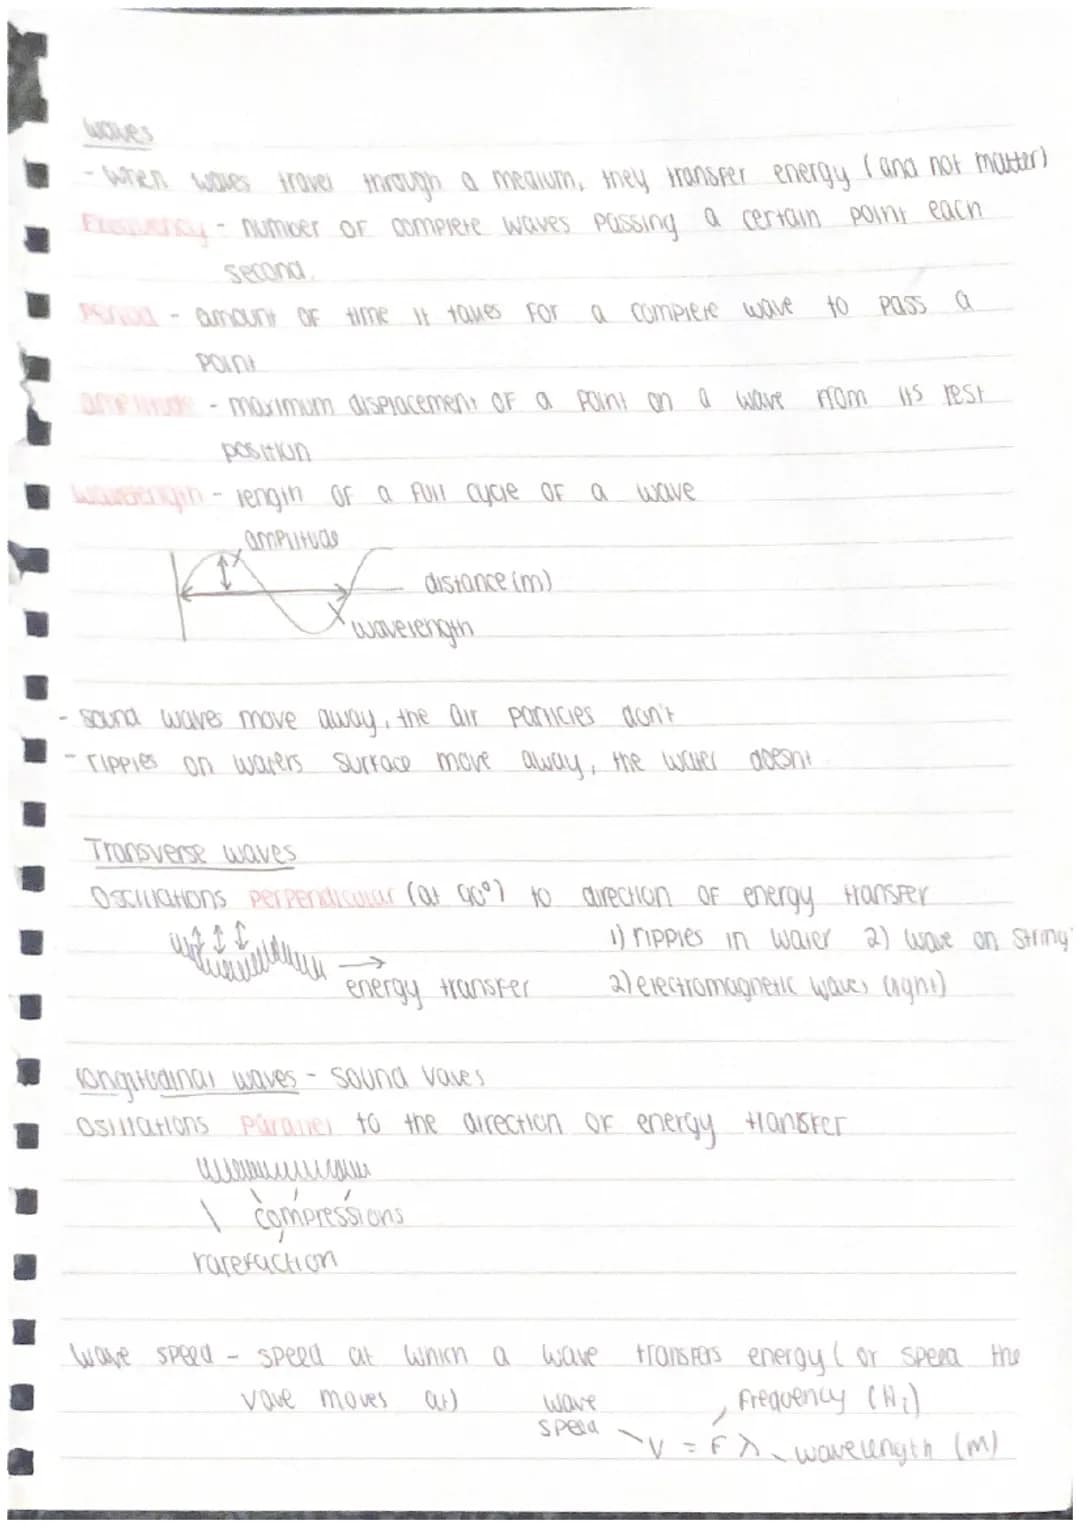 waves
- when waves travel through a medium, they transfer energy (and not matter)
Frequency - number of complete waves passing a certain point each
second.
Period - amount of time it takes for a complete wave to pass a
point
amplitude - maximum displacement of a point on a wave from its rest
position
wavelength - length of a full cycle of a wave
amplitude
distance (m)
wavelength
- sound waves move away, the air particles don't
- ripples on waters surface move away, the water doesnt
Transverse waves
Oscillations perpendicular (at 90°) to direction of energy transfer
1) ripples in water 2) wave on string
energy transfer 2) electromagnetic waves (light)
longitudinal waves - sound vaves
Osillations parallel to the direction of energy transfer
compressions
rarefaction
wave speed - speed at which a wave transfers energy (or speed the
vave moves at)
wave speed
frequency (Hz)
V = F λ wavelength (m)